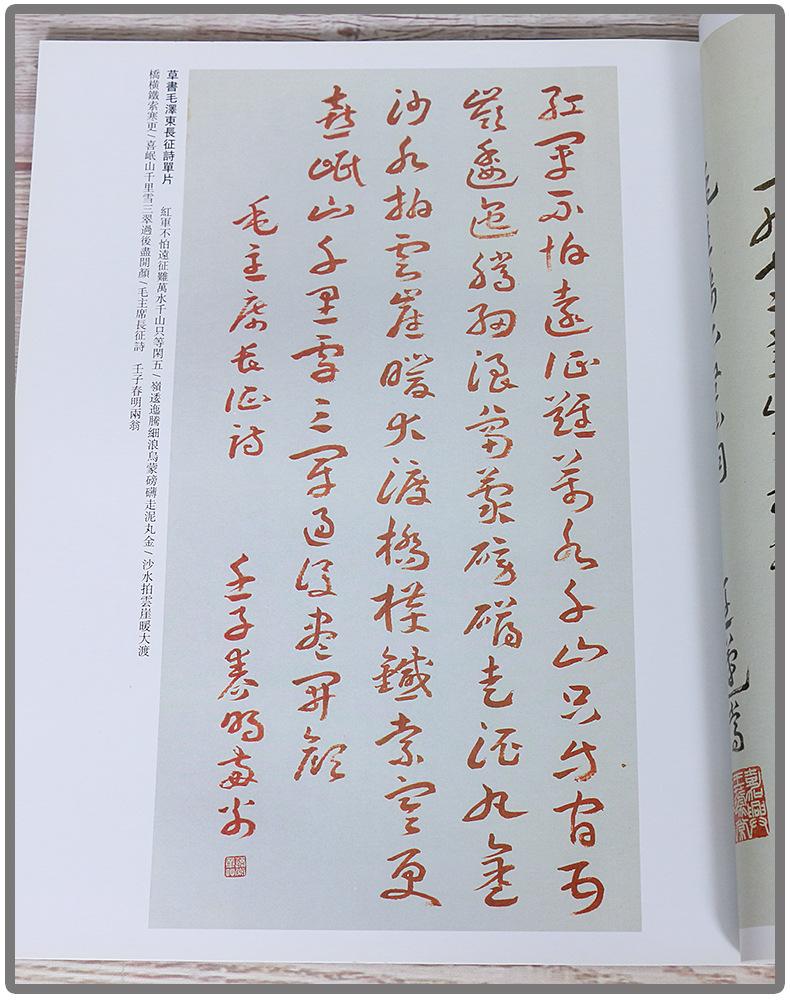 紅軍不怕遠征難萬水千山只等閑五
嶺逶迤騰細浪烏蒙磅礴走泥丸金
沙水拍雲崖暖大渡橋橫鐵索寒更
喜岷山千里雪三軍過後盡開顏
毛主席長征詩 壬子春明兩翁
草書毛澤東長征詩單片 紅軍不怕遠征難萬水千山只等閑五/嶺逶迤騰細浪烏蒙磅礴走泥丸金/沙水拍雲崖暖大渡
橋橫鐵索寒更/喜岷山千里雪三翠過後盡開顏/毛主席長征詩 壬子春明兩翁